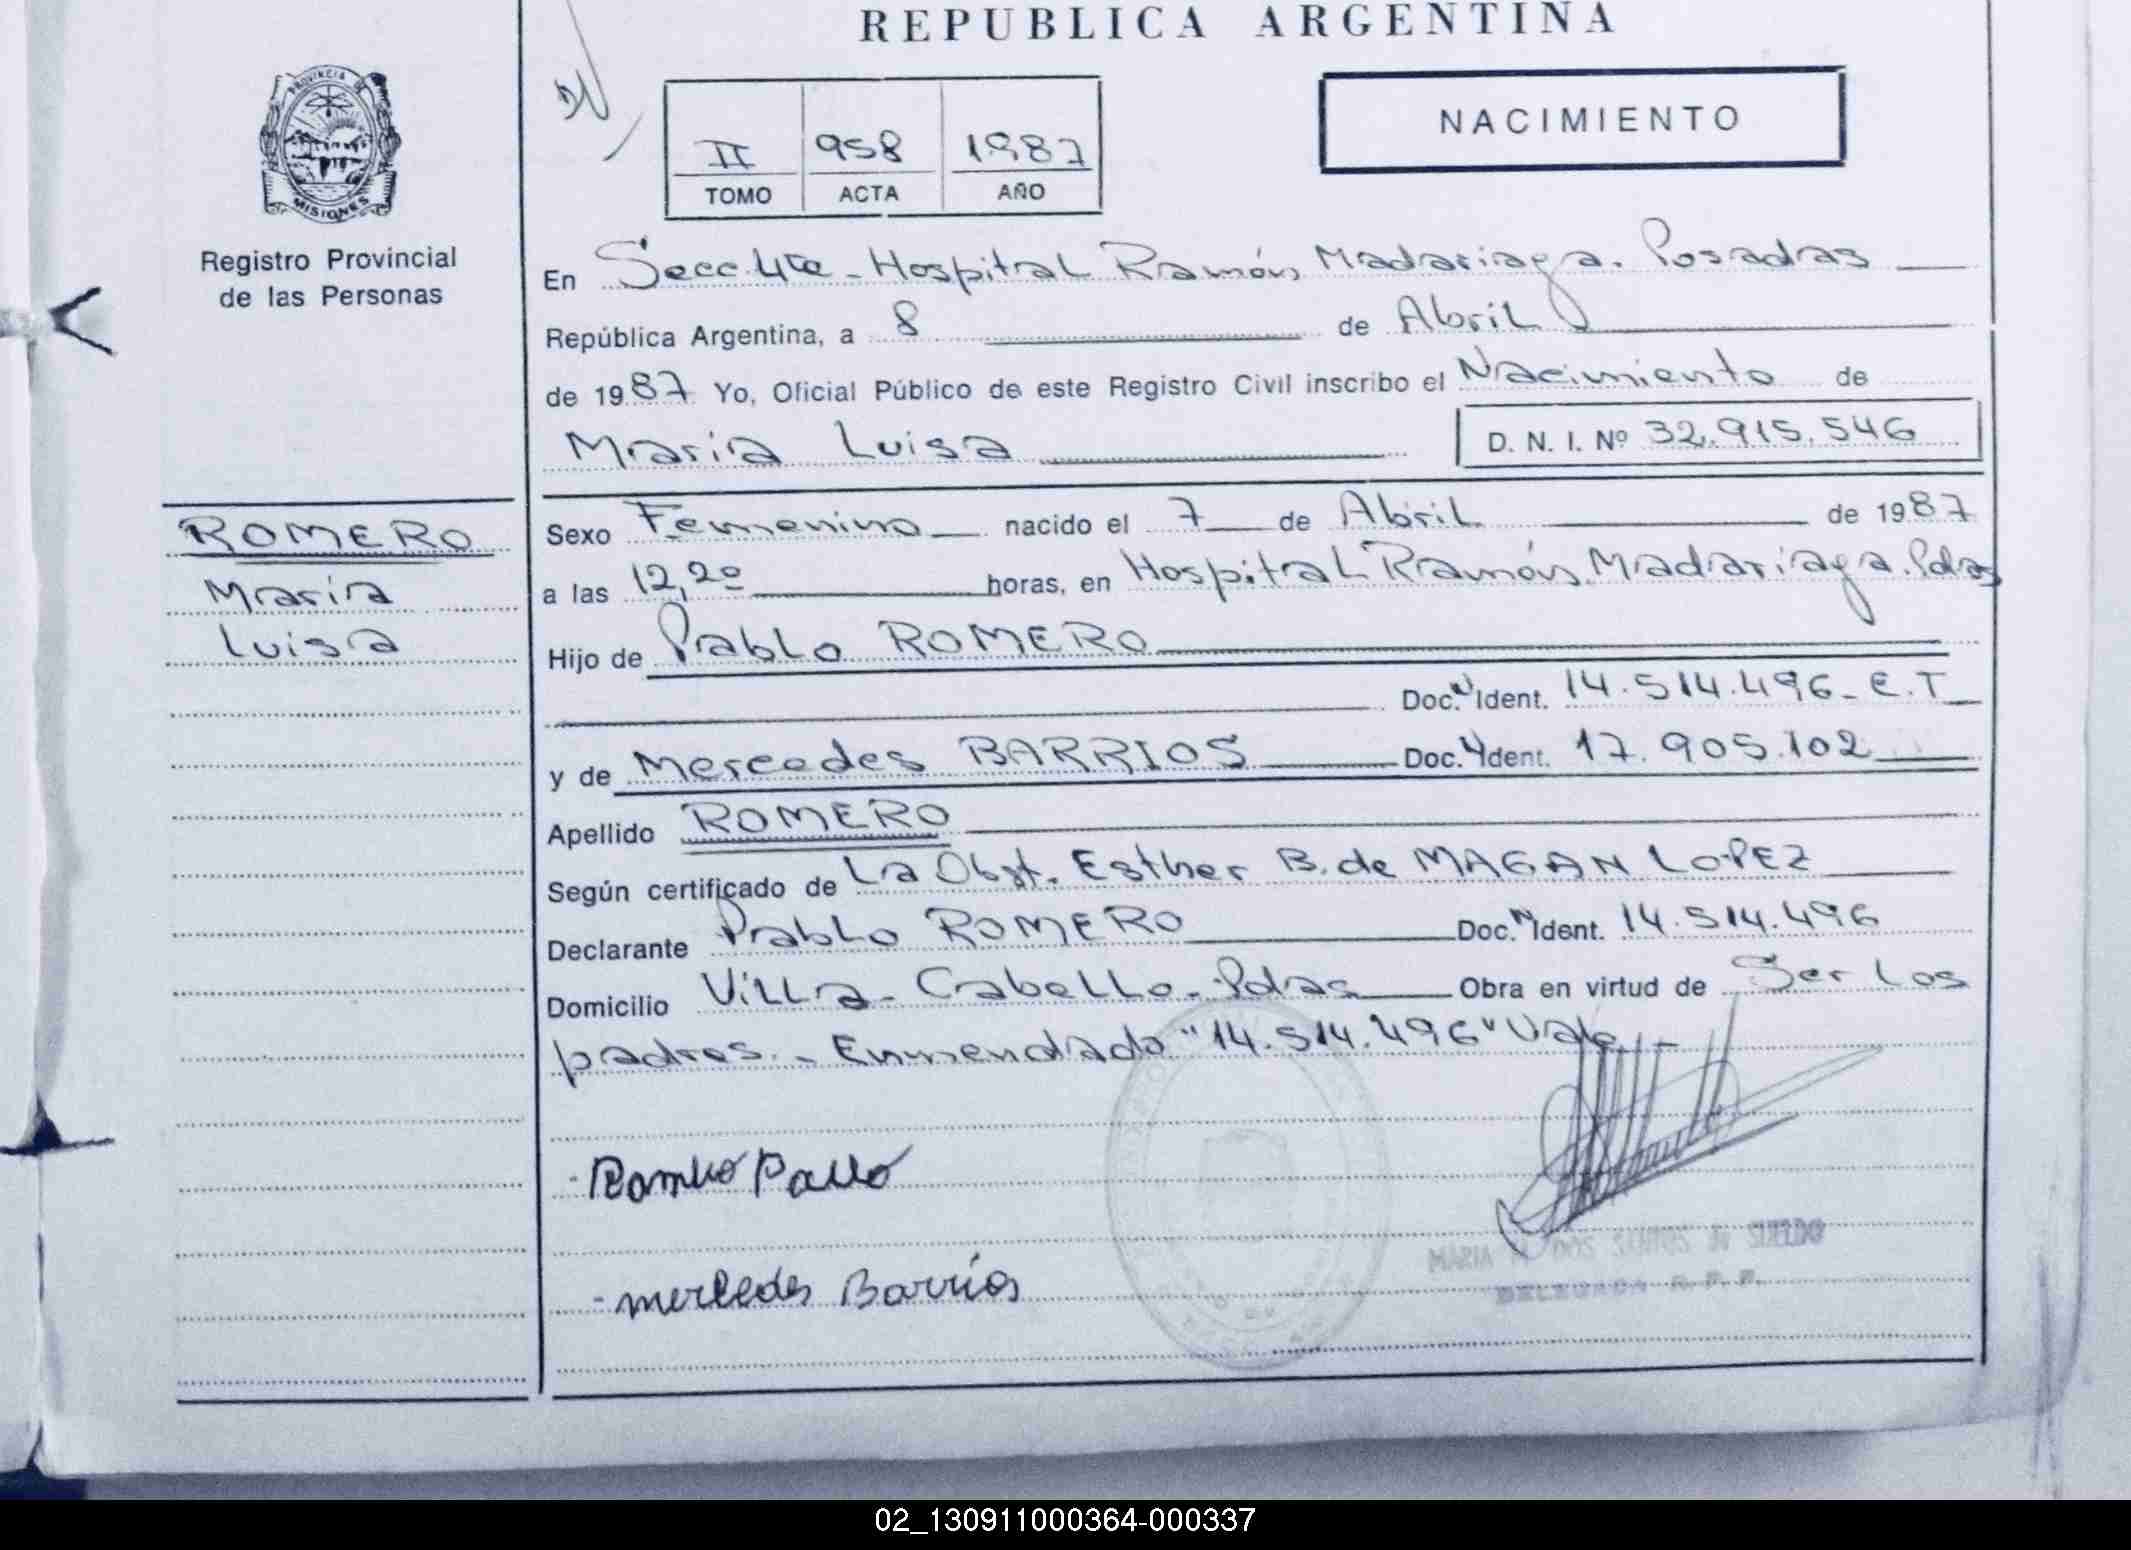 REPUBLICA ARGENTINA
PROVINCIA DE
MISIONES
Registro Provincial
de las Personas
II 958 1987
TOMO ACTA AÑO
NACIMIENTO
En Secc. 4ta - Hospital Ramón Madariaga. Posadas
República Argentina, a 8 de Abril
de 1987 Yo, Oficial Público de este Registro Civil inscribo el Nacimiento de
Maria Luisa D. N. I. Nº 32.915.546
ROMERO
Maria
Luisa
Sexo Femenino nacido el 7 de Abril de 1987
a las 12,20 horas, en Hospital Ramón Madariaga. Pdas
Hijo de Pablo ROMERO
Doc. Ident. 14.514.496 - E.T
y de Mercedes BARRIOS Doc. Ident. 17.905.102
Apellido ROMERO
Según certificado de La Obst. Esther B. de MAGAN LOPEZ
Declarante Pablo ROMERO Doc. Ident. 14.514.496
Domicilio Villa - Cabello - Pdas Obra en virtud de Ser los
padres. - Enmendado "14.514.496" Vale -
Pablo
- mercedes Barrios
MARIA DOS SANTOS
DELEGADA R. P. P.
02_130911000364-000337